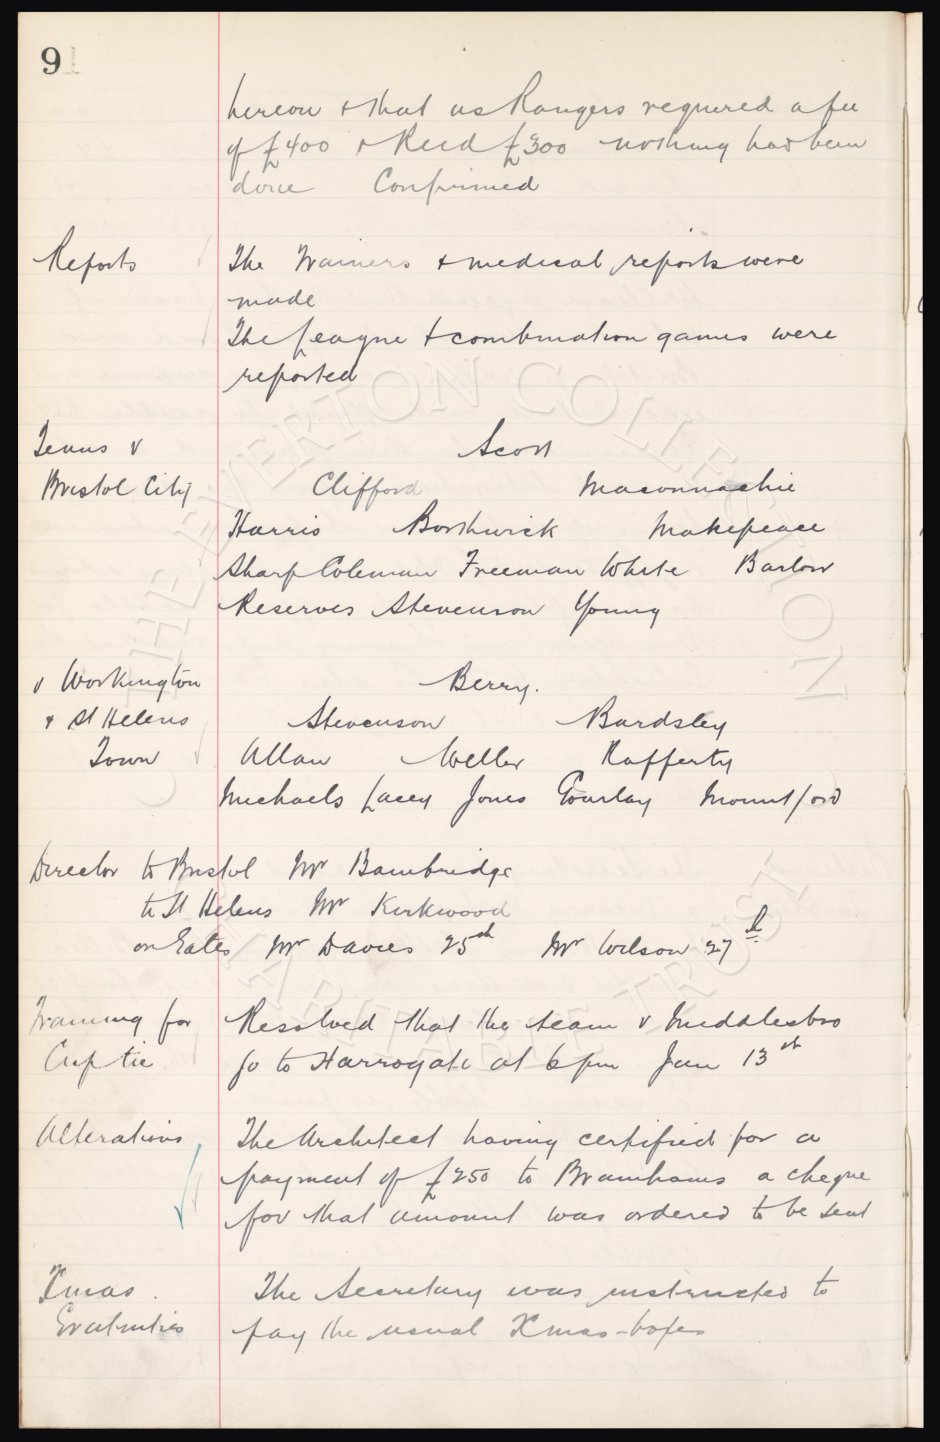 9
hereon & that as Rangers required a fee
of £400 & Reid £300 nothing had been
done Confirmed
Reports The Trainers & medical reports were
made
The League & combination games were
reported
Teams v Scott
Bristol City Clifford Maconnachie
Harris Borthwick Makepeace
Sharp Coleman Freeman White Barlow
Reserves Stevenson Young
v Workington Berry.
& St Helens Stevenson Bardsley
Town Allan Weller Rafferty
Michaels Lacey Jones Gourlay Mountford
Director to Bristol Mr Bainbridge
to St Helens Mr Kirkwood
on Gates Mr Davies 25th Mr Wilson 27th
Training for Resolved that the team v Middlesbro
Cup tie go to Harrogate at 6 pm Jan 13th
Alterations The Architect having certified for a
payment of £250 to Bramhams a cheque
for that amount was ordered to be sent
Xmas. The Secretary was instructed to
Gratuities pay the usual Xmas-boxes
THE EVERTON COLLECTION
CHARITABLE TRUST